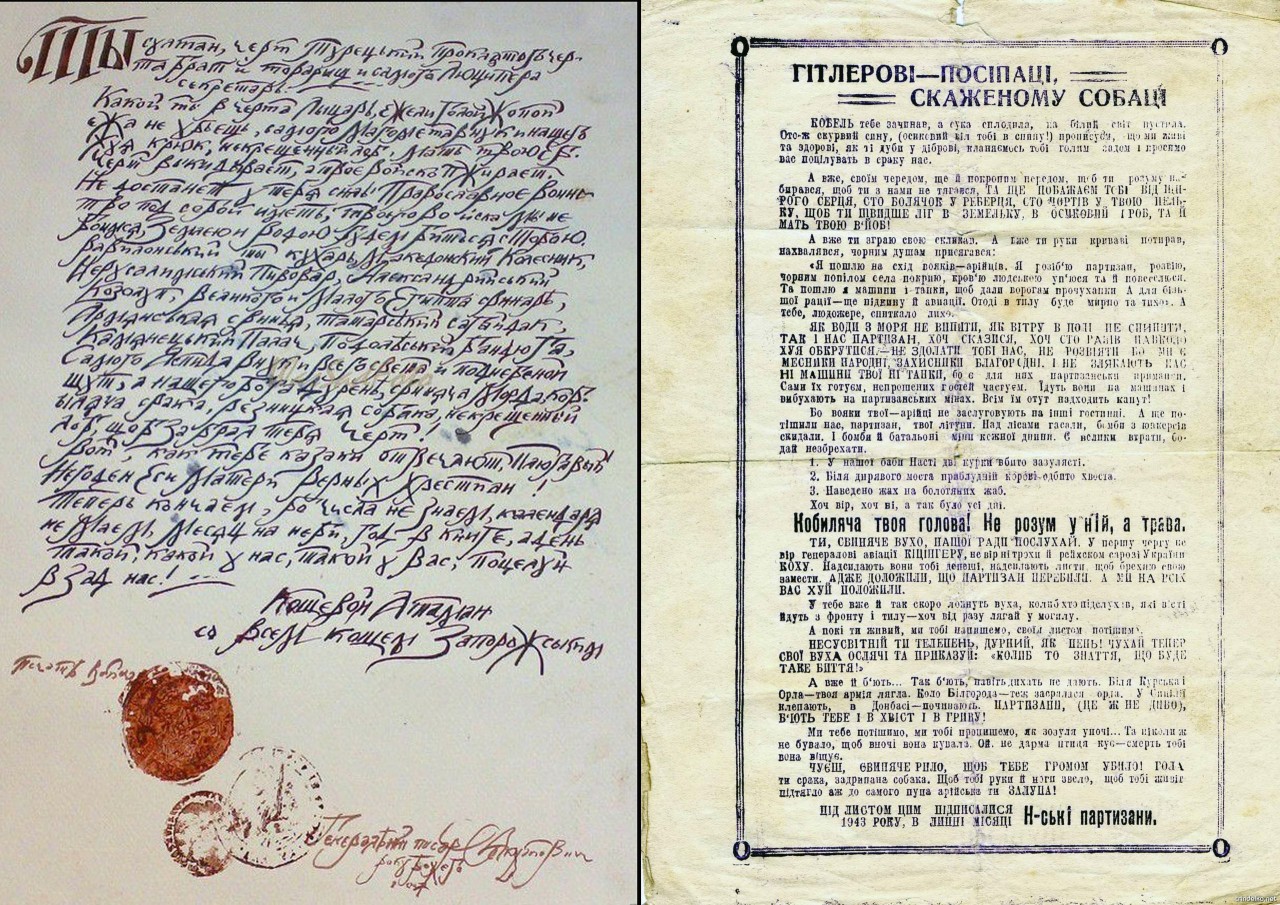 Ты
султан, черт турецький, проклятого чер-
та брат и товарищ и самого Люципера
секретарь!
Какой ты в черта лыцарь, ежели голой жопой
ежа не убъешь,
черт выкидывает, а твое войско пожирает.
Не достанет у тебя силы Православное воинс-
тво под собой иметь, твоего войска мы не
боимся, землею и водою будем битися с тобою.
Вавилонський ты кухарь, Македонский колесник,
Иерусалимський пивовар, Александрийський
козолуп, Великого и Малого Египта свинарь,
Армянськая свинья, татарський сагайдак,
Каменецький палач, Подольський бандюга,
Самого Аспида внук и всего света и подсветного
шут, а нашего
кобылача срака, резницкая собака, некрещенный
лоб, щоб забрал тебя черт!
Вот как тебе казаки отвечают, плюгавый!
Негоден еси матери верных хрестиан!
Теперь кончаем, бо числа не знаем, календаря
не маем, месяц на небе, год в книге, а день
такой, какой у нас, такой и у вас, поцелуй
в зад нас!
Кошевой Атаман
со всем кошем Запорожськием
Печать
Генеральний писарь
ГІТЛЕРОВІ—ПОСІПАЦІ,
СКАЖЕНОМУ СОБАЦІ
КОБЕЛЬ тебе зачинав, а сука сплодила, на білий світ пустила.
Ото-ж скурвий сину, (осиковий кіл тобі в спину!) прописуєм, що ми живі
та здорові, як ті дуби у діброві, кланяємось тобі голим задом і просимо
вас поцілувать в сраку нас.
А вже, своїм чередом, ще й покропим передом, щоб ти розуму на-
бирався, щоб ти з нами не тягався, ТА ЩЕ ПОБАЖАЄМ ТОБІ ВІД ЩИ-
РОГО СЕРЦЯ, СТО БОЛЯЧОК У РЕБЕРЦЯ, СТО ЧОРТІВ У ТВОЮ ПЕЛЬ-
КУ, ЩОБ ТИ ШВИДШЕ ЛІГ В ЗЕМЕЛЬКУ, В ОСИКОВИЙ ГРОБ, ТА Й
МАТЬ ТВОЮ В'ЙОБ!
А вже ти зграю свою скликав. А вже ти руки криваві потирав,
нахвалявся, чорним душам присягався:
«Я пошлю на схід вояків—арійців. Я розіб'ю партизан, розвію,
чорним попілом села покрию, кров'ю людською уп'юся та й повеселюся.
Та пошлю я машини і танки, щоб дали ворогам прочуханки А для біль-
шої рації—ще підкину й авіації. Отоді в тилу буде мирно та тихо». А
тебе, людожере, спиткало лихо.
ЯК ВОДИ З МОРЯ НЕ ВИПИТИ, ЯК ВІТРУ В ПОЛІ НЕ СПИНИТИ,
ТАК І НАС ПАРТИЗАН, ХОЧ СКАЗИСЯ, ХОЧ СТО РАЗІВ НАВКОЛО
ХУЯ ОБКРУТИСЯ—НЕ ЗДОЛАТИ ТОБІ НАС, НЕ РОЗВІЯТИ БО МИ Є
МЕСНИКИ НАРОДНІ, ЗАХИСНИКИ БЛАГОРОДНІ. І НЕ ЗЛЯКАЮТЬ НАС
НІ МАШИНИ ТВОЇ НІ ТАНКИ, бо є для них партизанськи приманки.
Сами їх готуєм, непрошених гостей частуєм. Їдуть вони на машинах і
вибухають на партизанських мінах. Всім їм отут надходить капут!
Бо вояки твої—арійці не заслуговують на інші гостинці. А ще по-
тішили нас, партизан, твої літуни. Над лісами гасали, бомби з юнкерсів
скидали. І бомби й батальоні міни кожної днини. Є велики втрати, бо-
дай незбрехати.
1. У нашої баби Насті дві курки вбито зозулясті.
2. Біля дирявого моста приблудній корові одбито хвоста.
3. Наведено жах на болотяних жаб.
Хоч вір, хоч ні, а так було усі дні.
Кобиляча твоя голова! Не розум у ній, а трава.
ТИ, СВИНЯЧЕ ВУХО, НАШОЇ РАДИ ПОСЛУХАЙ. У першу чергу не
вір генералові авіації КІЦІНГЕРУ, не вір ні трохи й рейхском сарозі України
КОХУ. Надсилають вони тобі депеші, надсилають листи, щоб брехню свою
замести. АДЖЕ ДОЛОЖИЛИ, ЩО ПАРТИЗАН ПЕРЕБИЛИ. А МИ НА ВСІХ
ВАС ХУЙ ПОЛОЖИЛИ.
У тебе вже й так скоро лопнуть вуха, коли б хто підслухів, які вісті
йдуть з фронту і тилу—хоч від разу лягай у могилу.
А поки ти живий, ми тобі напишемо, своїм листом потішим.
НЕСУСВІТНІЙ ТИ ТЕЛЕПЕНЬ, ДУРНИЙ, ЯК ПЕНЬ! ЧУХАЙ ТЕПЕР
СВОЇ ВУХА ОСЛЯЧІ ТА ПРИКАЗУЙ: «КОЛИБ ТО ЗНАТТЯ, ЩО БУДЕ
ТАКЕ БИТТЯ!»
А вже й б'ють... Так б'ють, навіть дихать не дають. Біля Курська і
Орла—твоя армія лягла. Коло Білгорода—теж засралася орда. У Сицілії
клепають, в Донбасі—починають. ПАРТИЗАНИ, (ЦЕ Ж НЕ ДИВО),
Б'ЮТЬ ТЕБЕ І В ХВІСТ І В ГРИВУ!
Ми тебе потішимо, ми тобі пропишемо, як зозуля уночі... Та ніколи ж
не бувало, щоб вночі вона кувала. Ой, не дарма птиця кує—смерть тобі
вона віщує.
ЧУЄШ, СВИНЯЧЕ РИЛО, ЩОБ ТЕБЕ ГРОМОМ УБИЛО! ГОЛА
ти срака, задрипана собака. Щоб тобі руки й ноги звело, щоб тобі живіт
підтягло аж до самого пупа арійська ти ЗАЛУПА!
ПІД ЛИСТОМ ЦИМ ПІДПИСАЛИСЯ
1943 РОКУ, В ЛИПНІ МІСЯЦІ Н-ські партизани.